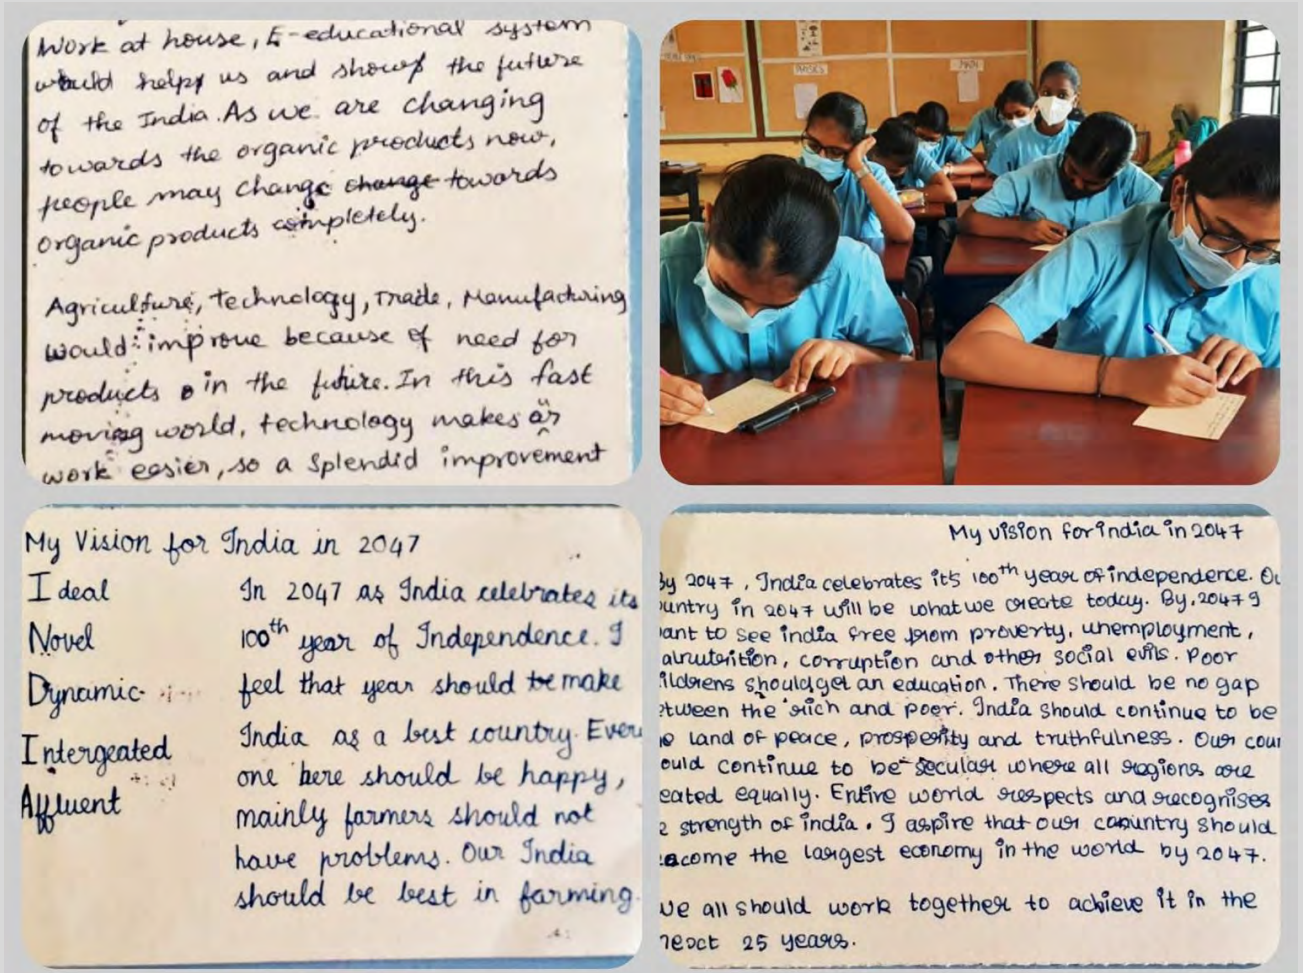 Work at house, E-educational system
would helps us and shows the future
of the India. As we are changing
towards the organic products now,
people may change change towards
organic products completely.
Agriculture, technology, Trade, Manufacturing
would improve because of need for
products in the future. In this fast
moving world, technology makes our
work easier, so a splendid improvement
My Vision for India in 2047
Ideal
Novel
Dynamic
Intergeated
Affluent
In 2047 as India celebrates its
100th year of Independence. I
feel that year should be make
India as a best country. Every
one here should be happy,
mainly farmers should not
have problems. Our India
should be best in farming.
My vision for india in 2047
By 2047, India celebrates it's 100th year of independence. Ou
untry in 2047 will be what we create today. By, 2047 I
ant to see india free from proverty, unemployment,
alnuterition, corruption and other social evils. Poor
ildrens should get an education. There should be no gap
etween the rich and poor. India should continue to be
land of peace, prosperity and truthfulness. Our coun
ould continue to be secular where all regions are
eated equally. Entire world respects and recognises
e strength of india. I aspire that our country should
ecome the largest economy in the world by 2047.
We all should work together to achieve it in the
next 25 years.